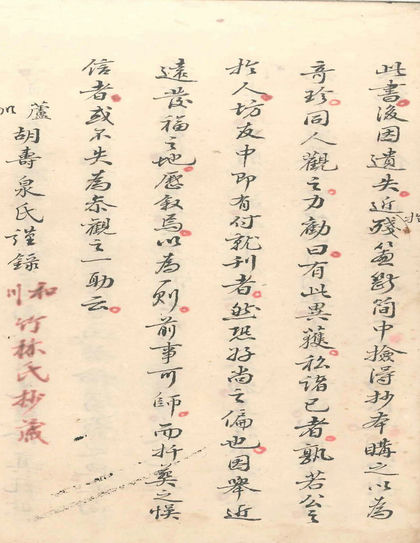 此書後因遺失近殘篇斷簡中撿得抄本購之以為
奇珍同人觀之力勸曰有此異獲私諸已者孰若公之
於人坊友中即有付就刊者然恐好尚之偏也因舉近
遠發福之地歷叙焉以為則前事可師而折奠之悞
信者或不失為參觀之一助云
蘆 胡壽泉氏謹錄
和川竹林氏抄藏